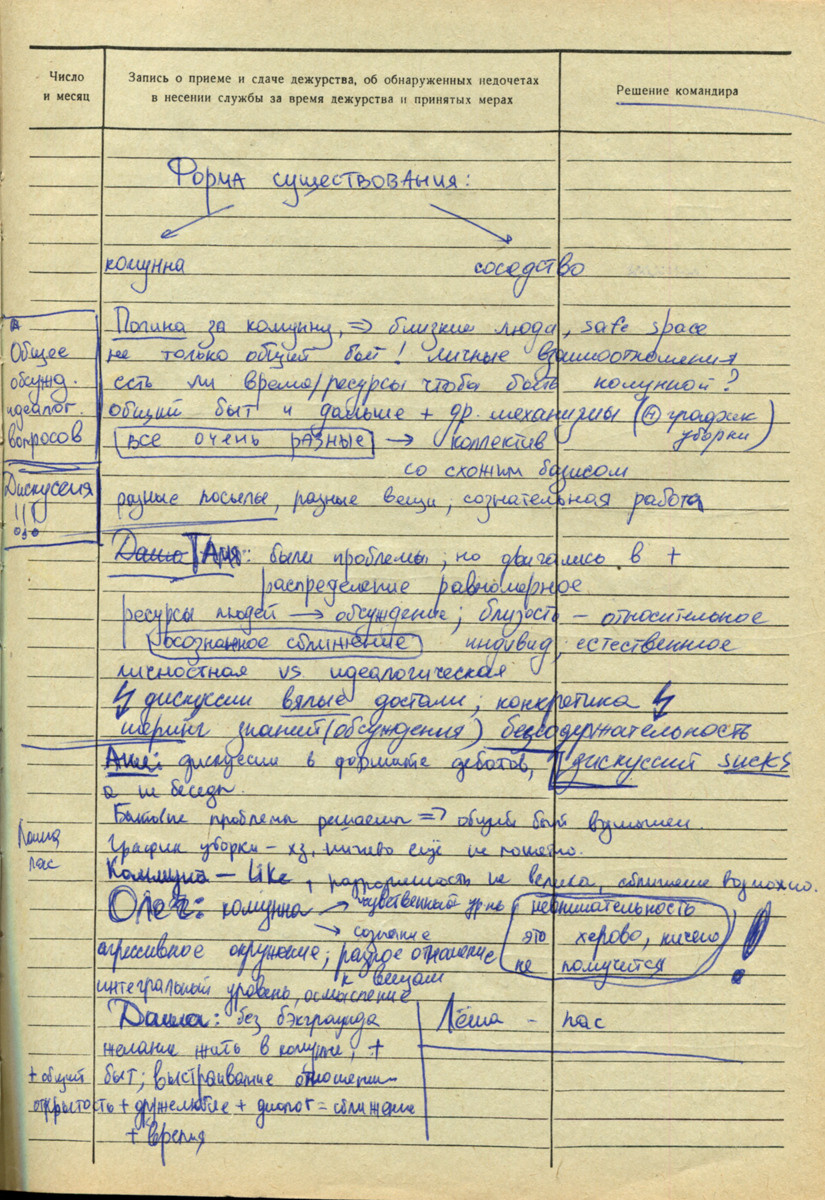 Число
и месяц
Запись о приеме и сдаче дежурства, об обнаруженных недочетах
в несении службы за время дежурства и принятых мерах
Решение командира
Форма существования:
комунна
соседство
Общее
обсужд.
идеолог.
вопросов
Дискуссия
Полина за комунну, ⇒ близкие люди, safe space
не только общий быт! личные взаимоотношения
есть ли время/ресурсы чтобы быть комунной?
общий быт и дальше + др. механизмы (+ график
уборки)
все очень разные → коллектив
со схожим базисом
разные посылы, разные вещи, сознательная работа
Даша Таня: были проблемы, но двигались в +
распределение равномерное
ресурсы людей → обсуждение; близость – относительное
осознанное сближение индивид, естественное
личностная vs идеалогическая
дискуссии вялые достали; конкретика
шеринг знаний (обсуждения) безсодержательность
дискуссий sucks
Аня: дискуссии в формате дебатов,
а не беседы.
Бытовые проблемы решаемы ⇒ общий быт возможен.
График уборки – хз, ничиво ещё не понятно.
Коммуна – like, разрозненность не велика, сближение возможно.
пас
Олег: комунна → чувственный урнь
→ сознание
невнимательность
это херово, ничего
не получится
агрессивное окружение; разное отношение
к вещам
интегральный уровень, осмысление
Даша: без бэкграунда
Лёша – пас
желание жить в комунне, +
+ общий быт; выстраивание отношений
открытость + дружелюбие + диалог = сближение
+ время